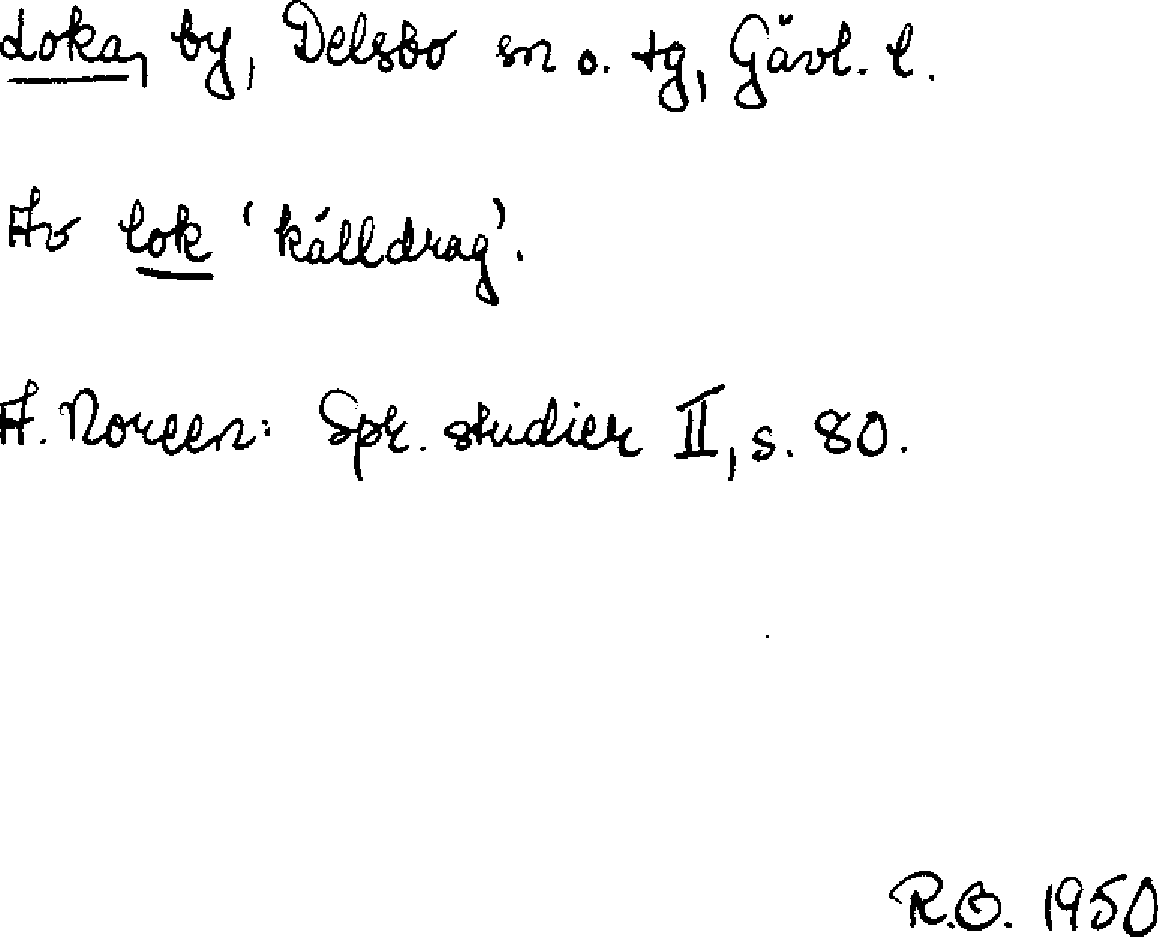 Loka, by, Delsbo sn o. tg, Gävl. l.
Av lok 'kålldrag'.
A. Noreen: Spr. studier II, s. 80.
R.O. 1950